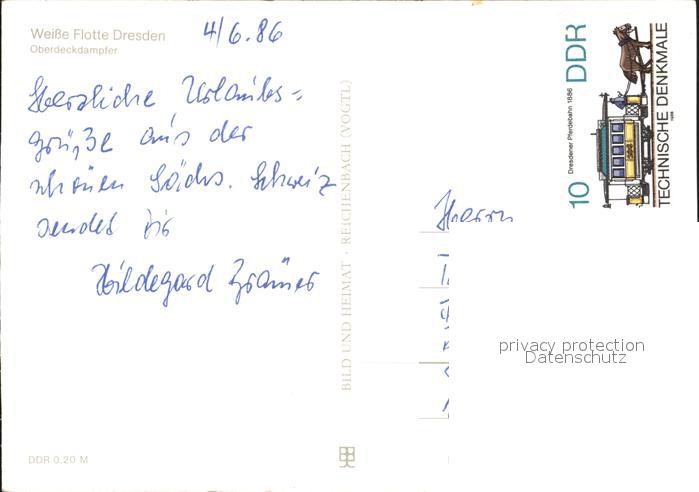 Weiße Flotte Dresden
Oberdeckdampfer
4/6.86
Herzliche Urlaubs=
grüße aus der
schönen Sächs. Schweiz
sendet Dir
Hildegard
BILD UND HEIMAT · REICHENBACH (VOGTL)
DDR 0,20 M
10 DDR
Dresdener Pferdebahn 1886
TECHNISCHE DENKMALE
1986
Herrn
privacy protection
Datenschutz